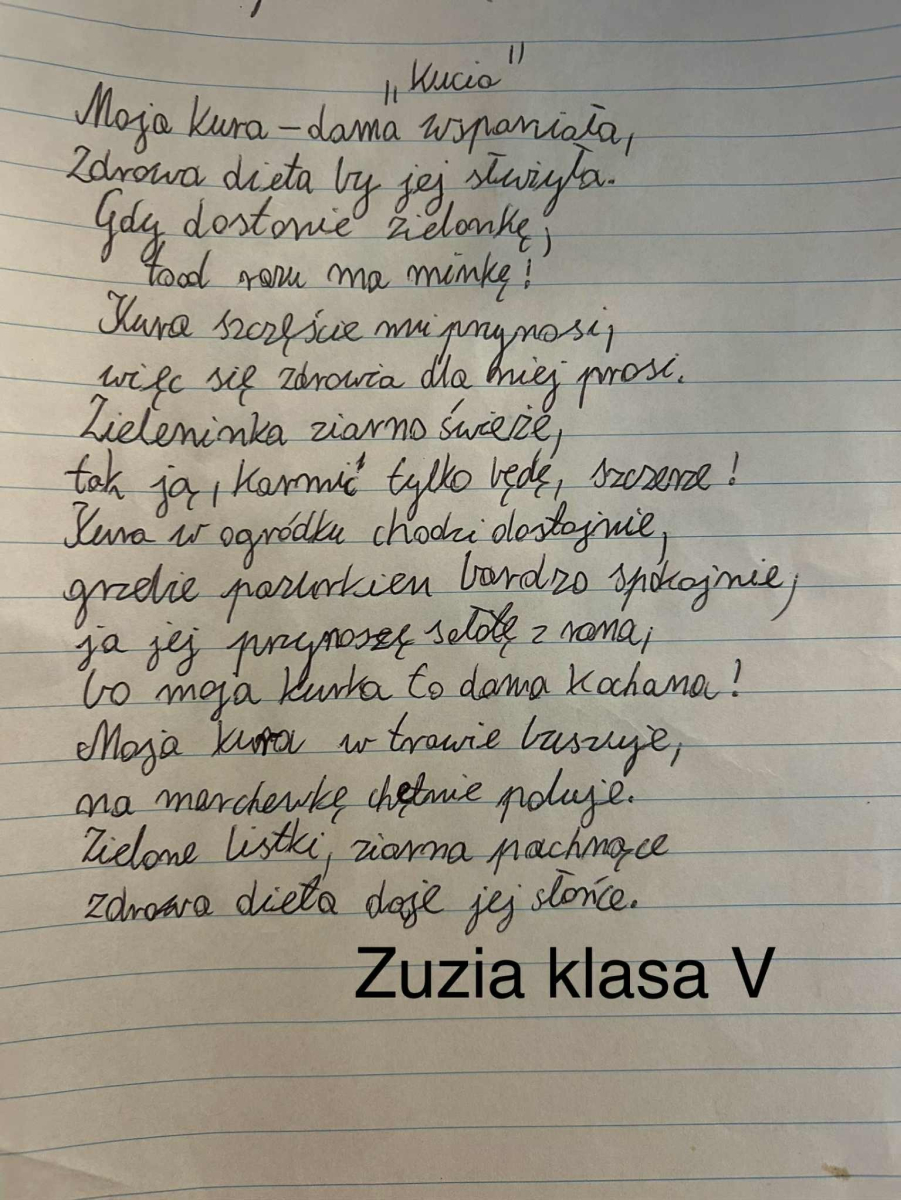 „Kucia"
Moja kura – dama wspaniała,
Zdrowa dieta by jej służyła.
Gdy dostanie zielonkę,
to od razu ma minkę!
Kura szczęście mi przynosi,
więc się zdrowia dla niej prosi.
Zieleninka ziarno świeże,
tak ją, karmić tylko będę, szczerze!
Kura w ogródku chodzi dostojnie,
grzebie pazurkiem bardzo spokojnie,
ja jej przynoszę sałatę z rana,
bo moja kurka to dama kochana!
Moja kura w trawie buszuje,
na marchewkę chętnie poluje.
Zielone listki, ziarna pachnące
zdrowa dieta daje jej słońce.
Zuzia klasa V